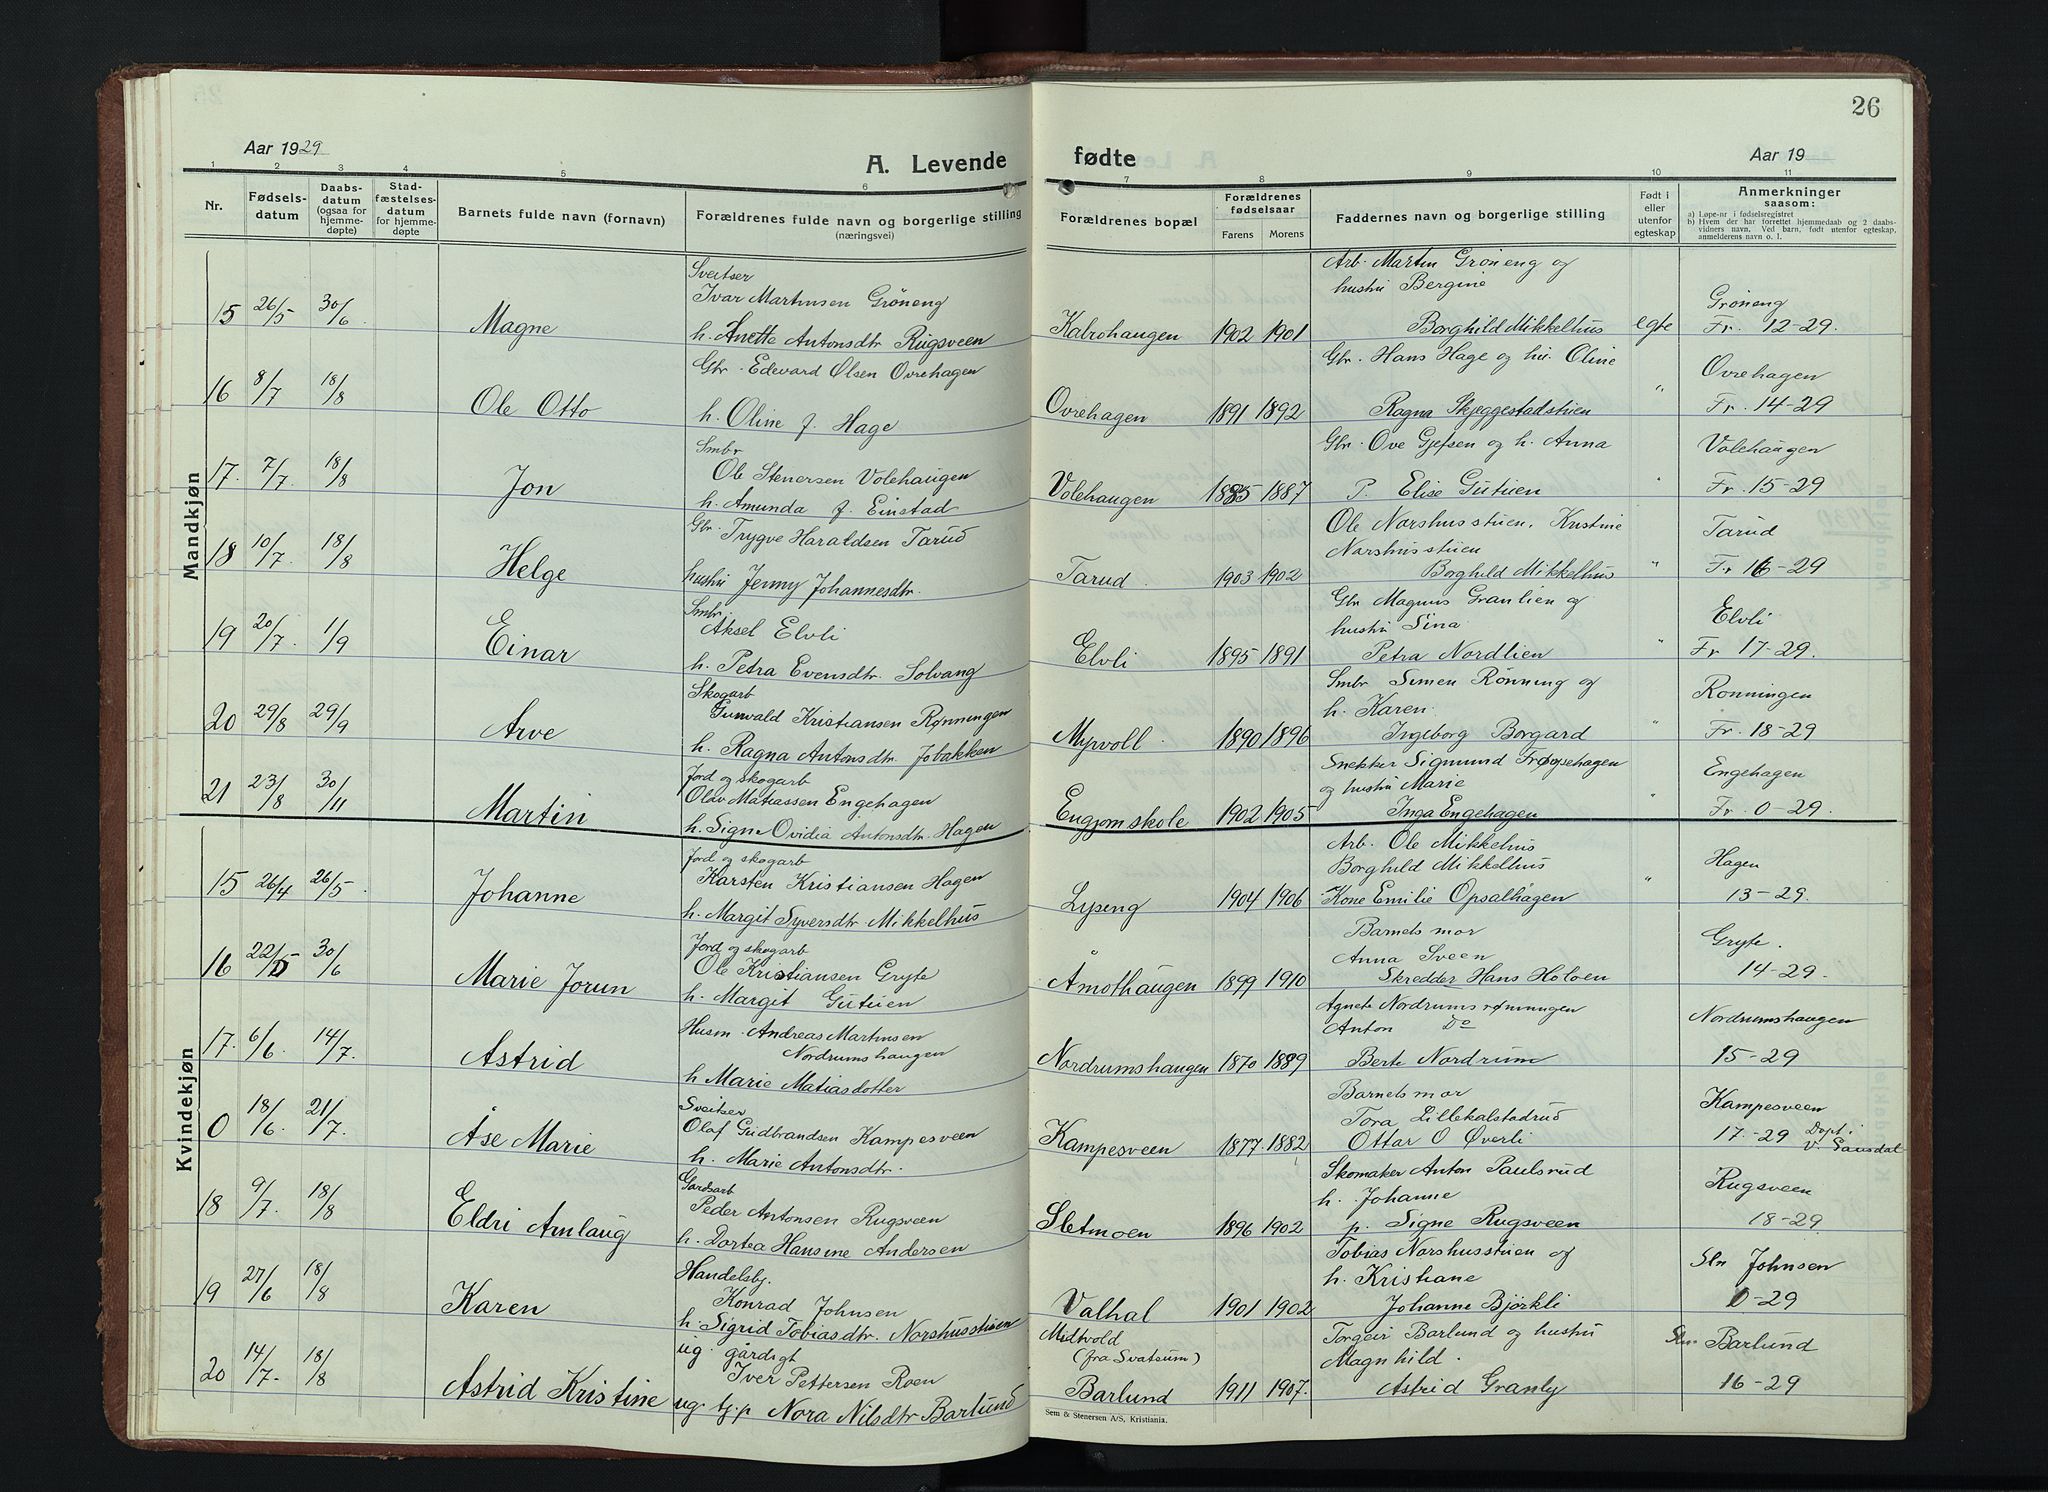 26
Aar 1929
A. Levende
fødte
Aar 19
1 2 3 4 5 6 7 8 9 10 11
Nr.
Fødsels-
datum
Daabs-
datum
(ogsaa for
hjemme-
døpte)
Stad-
fæstelses-
datum
for hjemme-
døpte
Barnets fulde navn (fornavn)
Forældrenes fulde navn og borgerlige stilling
(næringsvei)
Forældrenes bopæl
Forældrenes
fødselsaar
Farens Morens
Faddernes navn og borgerlige stilling
Født i
eller
utenfor
egteskap
Anmerkninger
saasom:
a) Løpe-nr i fødselsregistret
b) Hvem der har forrettet hjemmedaab og 2 daabs-
vidners navn. Ved barn, født utenfor egteskap,
anmelderens navn o. l.
Mandkjøn
15 26/5 30/6 Magne
Sveitser
Ivar Martinsen Grøneng
h. Anette Antonsdtr Rugsveen
Kalvohaugen 1902 1901
Arb. Martin Grøneng og
hustru Bergine
Borghild Mikkelhus
egte
Grøneng
Fr. 12-29.
16 8/7 18/8 Ole Otto
Gbr. Edevard Olsen Ovrehagen
h. Oline f. Hage
Ovrehagen 1891 1892
Gbr. Hans Hage og hu. Oline
Ragna Skjeggestadstuen
"
Ovrehagen
Fr. 14-29
17 7/7 18/8 Jon
Smbr
Ole Stenersen Volehaugen
h. Amunda f. Einstad
Volehaugen 1885 1887
Gbr. Ove Gjefsen og h. Anna
P. Elise Gutuen
"
Volehaugen
Fr. 15-29
18 10/7 18/8 Helge
Gbr. Trygve Haraldsen Tarud
hustru Jenny Johannesdtr.
Tarud. 1903 1902
Ole Norshusstuen. Kristine
Norshusstuen
Borghild Mikkelhus
"
Tarud
Fr 16-29
19 20/7 1/9 Einar
Smbr.
Aksel Elvli
h. Petra Evensdtr. Solvang
Elvli 1895 1891
Gbr Magnus Granlien og
hustru Sina
Petra Nordlien
"
Elvli
Fr 17-29.
20 29/8 29/9 Arve
Skogarb
Gunvald Kristiansen Rønningen
h. Ragna Antonsdtr. Jobakken
Myrvoll. 1890 1896
Smbr Simen Rønning og
h. Karen.
Ingeborg Borgard
"
Ronningen
Fr. 18-29
21 23/8 30/11 Martin
Jord og skogarb
Olav Matiassen Engehagen
h. Signe Ovidia Antonsdtr. Hagen
Engjomskole 1902 1905
Snekker Sigmund Frøysehagen
og hustru Marie
Inga Engehagen
"
Engehagen
Fr. 0-29.
Kvindekjøn
15 26/4 26/5 Johanne
Jord og skogarb
Karsten Kristiansen Hagen
h. Margit Syversdtr. Mikkelhus
Lyseng 1904 1906
Arb. Ole Mikkelhus
Borghild Mikkelhus
Kone Emilie Opsalhagen
"
Hagen
13-29.
16 22/5 30/6 Marie Jorun
Jord og skogarb
Ole Kristiansen Gryte
h. Margit Gutuen
Åmothaugen 1899 1910
Barnets mor
Anna Sveen
Skredder Hans Holoen
Gryte.
14-29.
17. 6/6. 14/7. Astrid
Husm. Andreas Martinsen
Nordrumshaugen
h. Marie Matiasdotter
Nordrumshaugen 1870 1889
Agnete Nordrumsrønningen
Anton Do
Berte Nordrum
Nordrumshaugen
15-29
0 18/6 21/7. Åse Marie
Sveitser
Olaf Gudbrandsen Kampesveen
h. Marie Antonsdtr.
Kampesveen 1877. 1882
Barnets mor
Tora Lillekalstadrud
Ottar O Øverli
Kampesveen
17.-29 Døpt i
V. Gausdal
18 9/7. 18/8 Eldri Amlaug
Gardsarb
Peder Antonsen Rugsveen
h. Dortea Hansine Andersen
Sletmoen 1896 1902
Skomaker Anton Paulsrud
h. Johanne
p. Signe Rugsveen
Rugsveen
18-29.
19 27/6 18/8 Karen
Handelsbj.
Konrad Johnsen
h. Sigrid Tobiasdtr. Norshusstuen
Valhal 1901 1902
Tobias Norshusstuen og
h. Kristiane
Johanne Bjørkli
Sln Johnsen
0-29
20 14/7. 18/8 Astrid Kristine
ug. gårdigt
Iver Pettersen Roen
ug tj.p Nora Nilsdtr Barlund
Midtvold
(fra Svatsum)
Barlund 1911 1907.
Torgeir Barlund og hustru
Magnhild.
Astrid Granly
Sln. Barlund
16-29
Sem & Stenersen A/S, Kristiania.